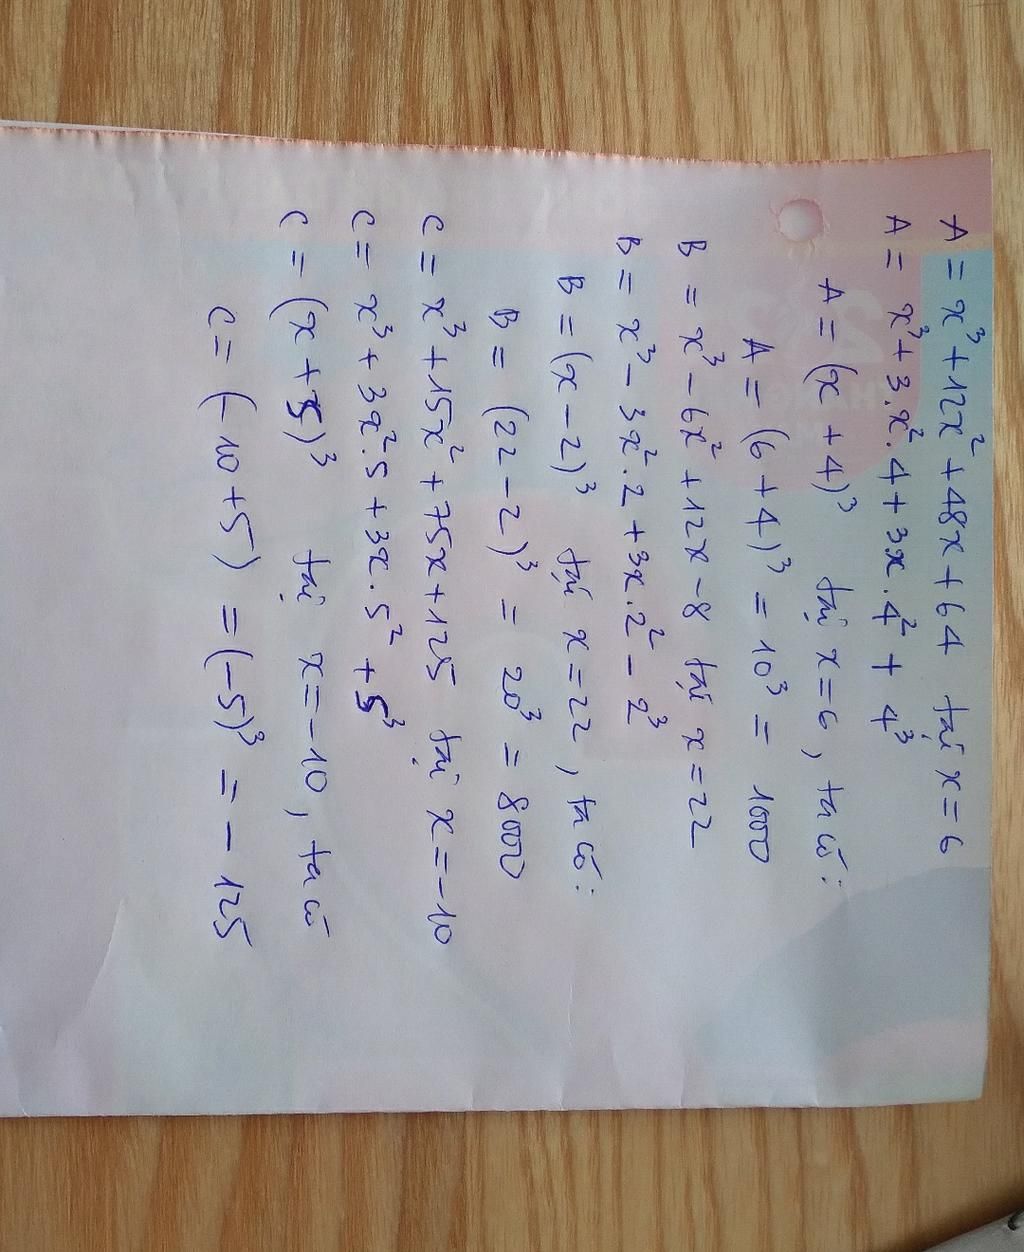 A = x³ + 12x² + 48x + 64 tại x = 6
A = x³ + 3.x². 4 + 3x. 4² + 4³
A = (x + 4)³ tại x = 6, ta có:
A = (6 + 4)³ = 10³ = 1000
B = x³ - 6x² + 12x - 8 tại x = 22
B = x³ - 3x². 2 + 3x. 2² - 2³
B = (x - 2)³ tại x = 22, ta có:
B = (22 - 2)³ = 20³ = 8000
C = x³ + 15x² + 75x + 125 tại x = -10
C = x³ + 3x². 5 + 3x. 5² + 5³
C = (x + 5)³ tại x = -10, ta có
C = (-10 + 5) = (-5)³ = - 125